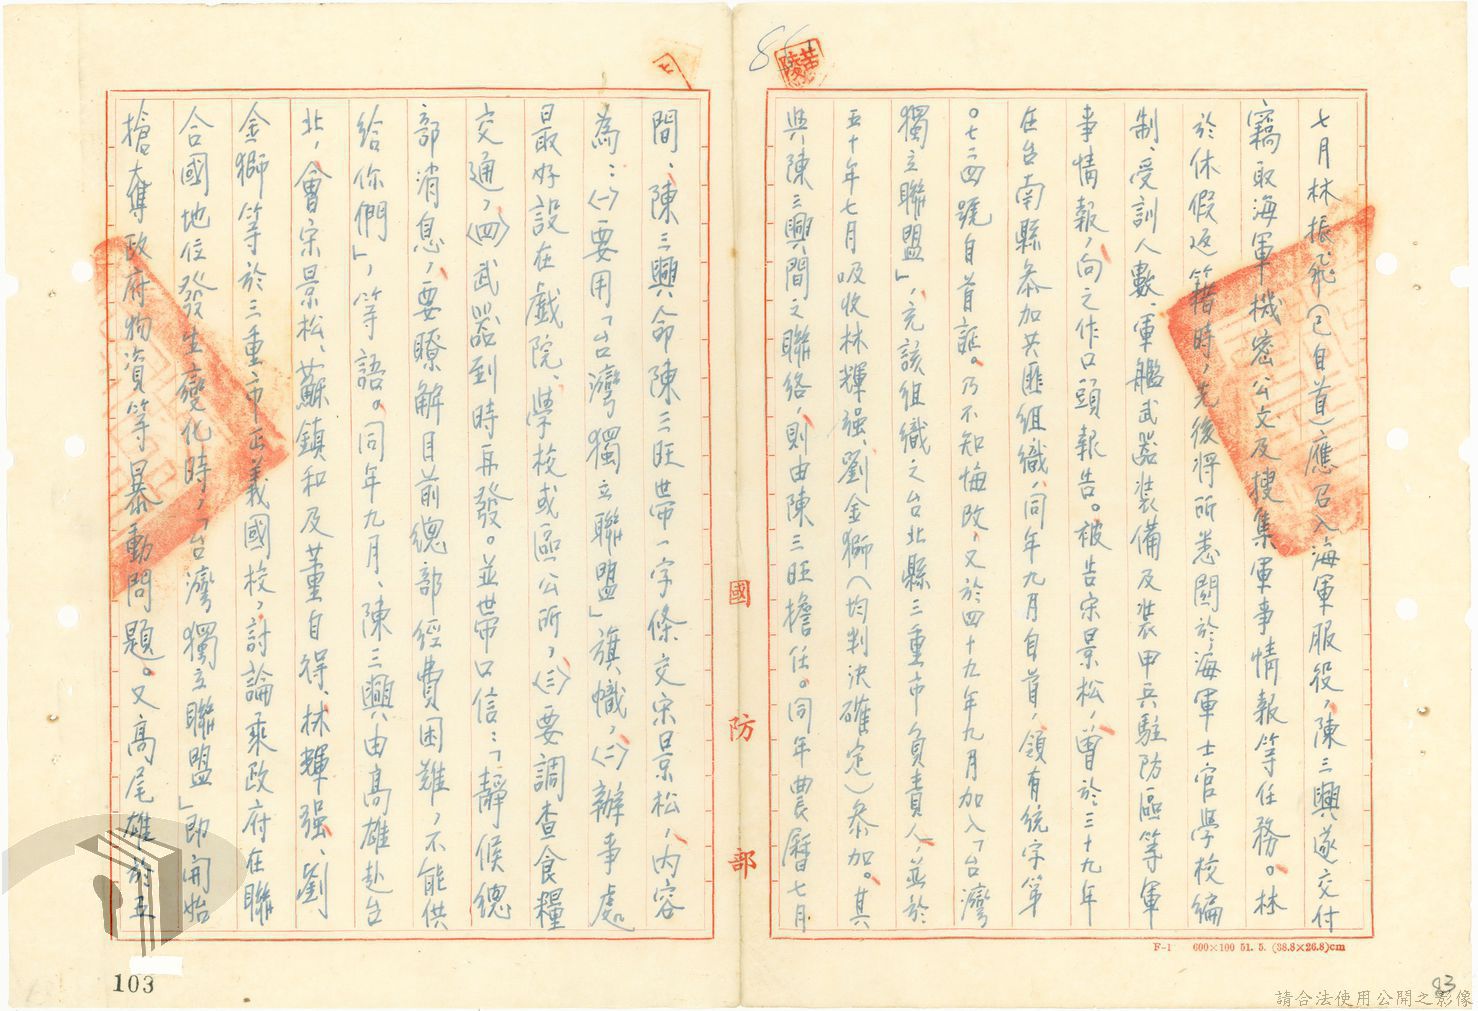 七月林振飛（已自首）應召入海軍服役，陳三興遂交付
竊取海軍機密公文及搜集軍事情報等任務。林
於休假返籍時，先後將所悉關於海軍士官學校編
制、受訓人數、軍艦武器裝備及裝甲兵駐防區等軍
事情報，向之作口頭報告。被告宋景松，曾於三十九年
在台南縣參加共匪組織，同年九月自首，領有統字第
○七二四號自首證。乃不知悔改，又於四十九年九月加入「台灣
獨立聯盟」，充該組織之台北縣三重市負責人，並於
五十年七月吸收林輝强、劉金獅（均判決確定）參加。其
與陳三興間之聯絡，則由陳三旺擔任。同年農曆七月
間，陳三興命陳三旺帶一字條交宋景松，內容
為：㈠要用「台灣獨立聯盟」旗幟，㈡辦事處
最好設在戲院、學校或區公所，㈢要調查食糧
交通，㈣武器到時再發。並帶口信：「靜候總
部消息，要瞭解目前總部經費困難，不能供
給你們」，等語。同年九月、陳三興由高雄赴台
北，會宋景松、蘇鎮和及董自得、林輝强、劉
金獅等於三重市正義國校，討論乘政府在聯
合國地位發生變化時，「台灣獨立聯盟」即開始
搶奪政府物資等暴動問題。又高尾雄於五
國防部
F-1 600×100 51. 5. (38.8×26.8)cm
103
83
請合法使用公開之影像